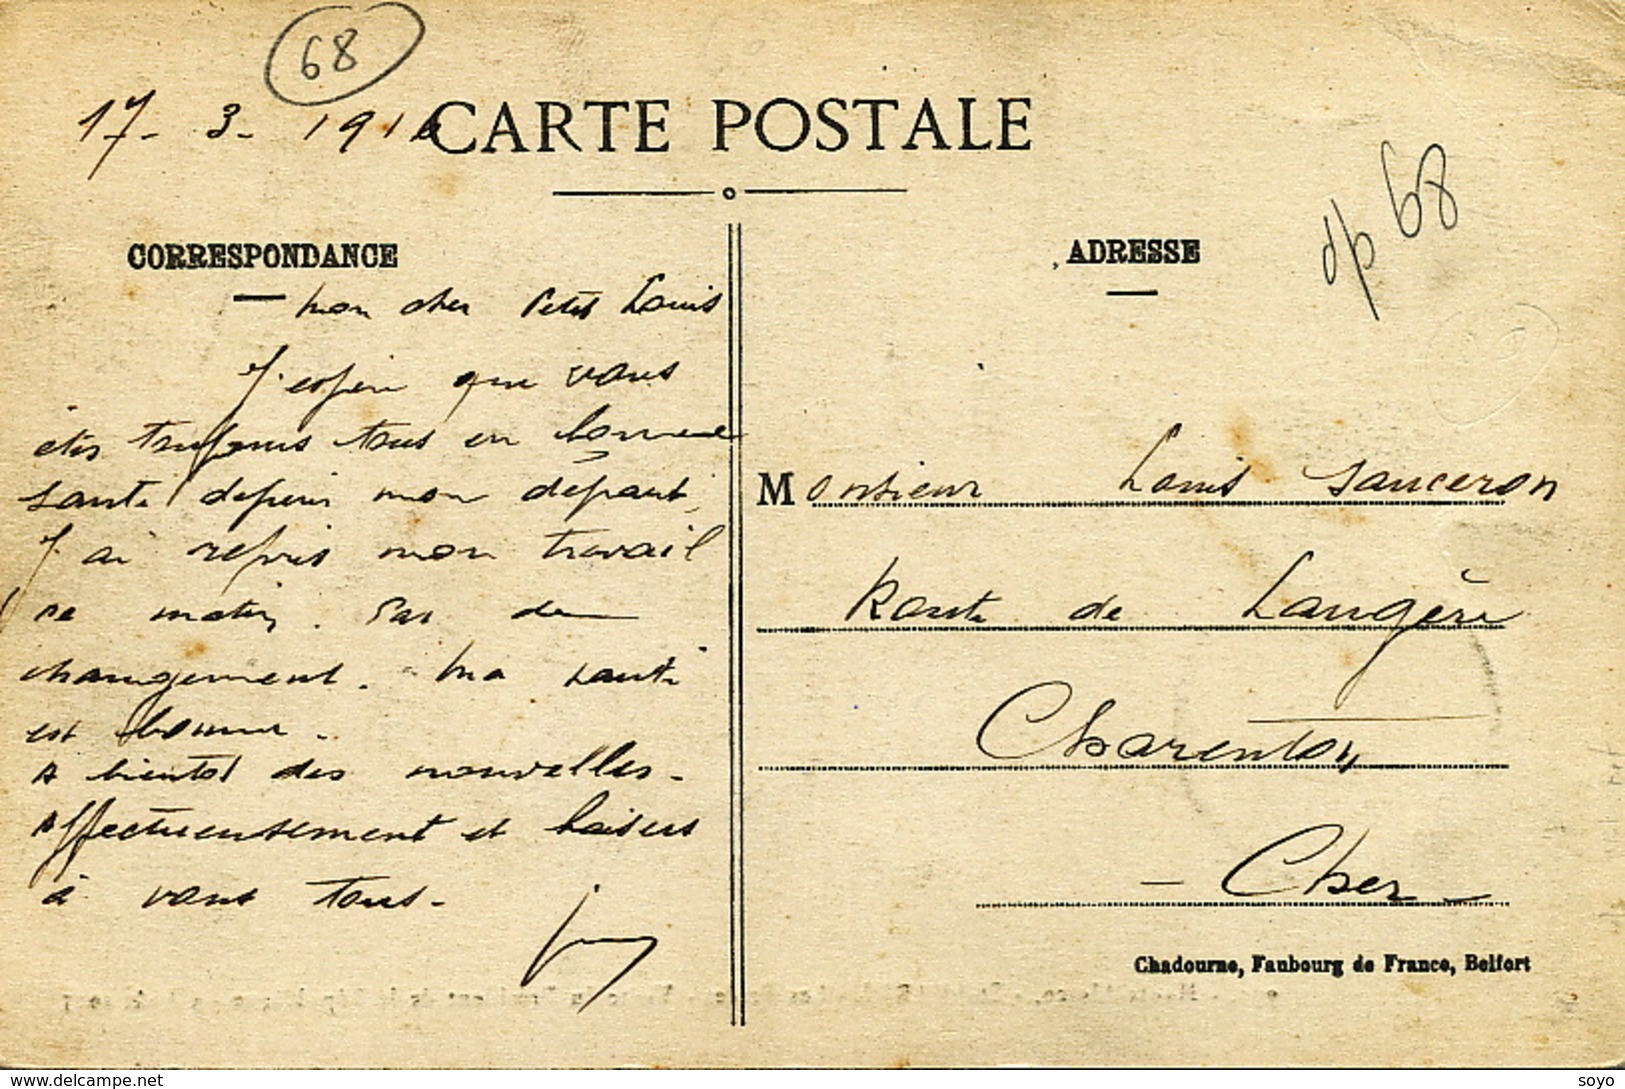 68
17- 3- 1916
CARTE POSTALE
dp 68
CORRESPONDANCE
mon cher Petit Louis
J'espère que vous
êtes toujours tous en bonne
santé depuis mon départ,
J'ai repris mon travail
ce matin. Pas de
changement. Ma santé
est bonne.
A bientôt des nouvelles.
Affectueusement et baisers
à vous tous.
ADRESSE
Monsieur Louis Sauceron
Route de Laugère
Charenton
- Cher -
Chadourne, Faubourg de France, Belfort
www.delcampe.net
soyo